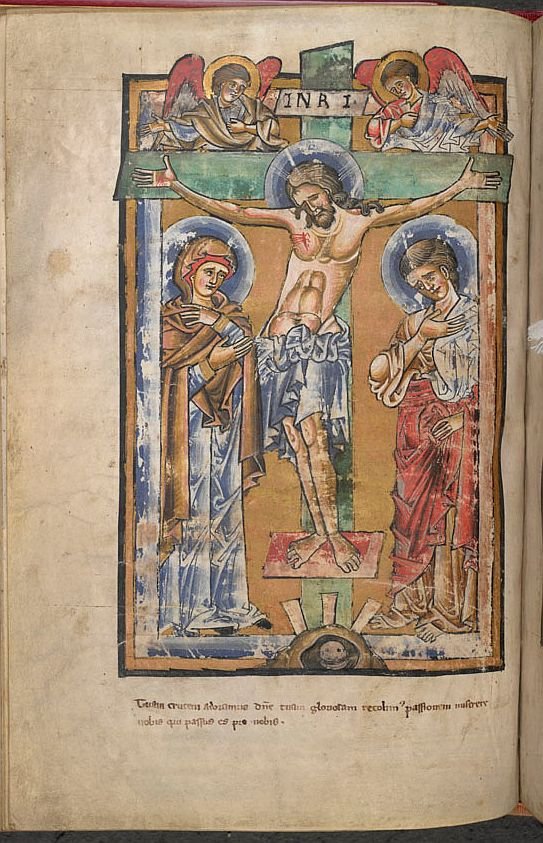 INRI
Tuam crucem adoramus dn̄e tuam gloriosam recolim⁹ passionem miserere
nobis qui passus es pro nobis.